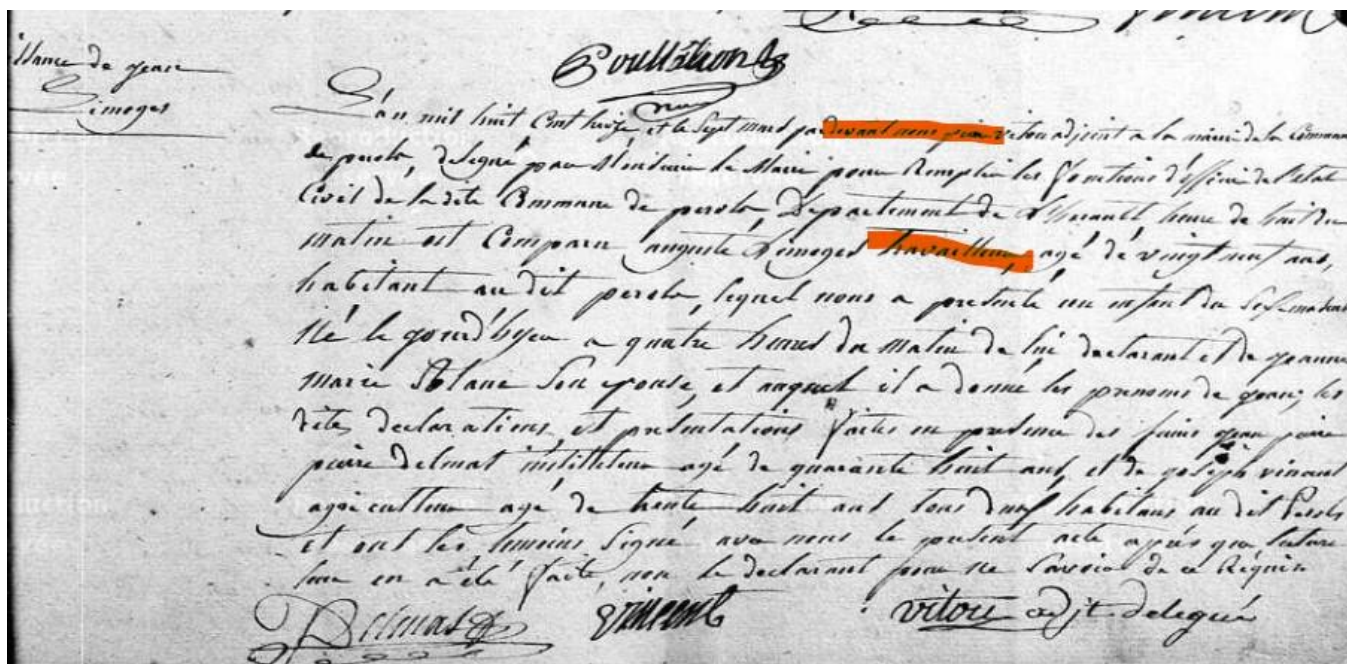 Vincent
ssance de jean
Limoges
L'an mil huit Cent treize et le sept mars pardevant nous pierre vitou adjoint a la mairie de la Commune
de perols, delegué par Monsieur le Maire pour Remplir les fonctions d'officier de l'etat
Civil de la dite Commune de perols, Departement de L'herault, heure de huit du
matin est Comparu auguste Limoges travailleur, agé de vingt neuf ans,
habitant au dit perols, lequel nous a presenté un enfant du sexe masculin
Né le jourd'hyer a quatre heures du matin de lui declarant et de jeanne
marie son epouse, et auquel il a donné les prenoms de jean; les
dites declarations et présentations faites en presence des jean pierre
pierre delmas instituteur agé de quarante huit ans, et de joseph vincent
agriculteur agé de trente huit ans tous deux habitans au dit Perols
et ont les temoins signé avec nous le present acte après que lecture
leur en a été faite, non le declarant pour ne savoir de ce Réquis
Delmas Vincent vitou adjt. delegué